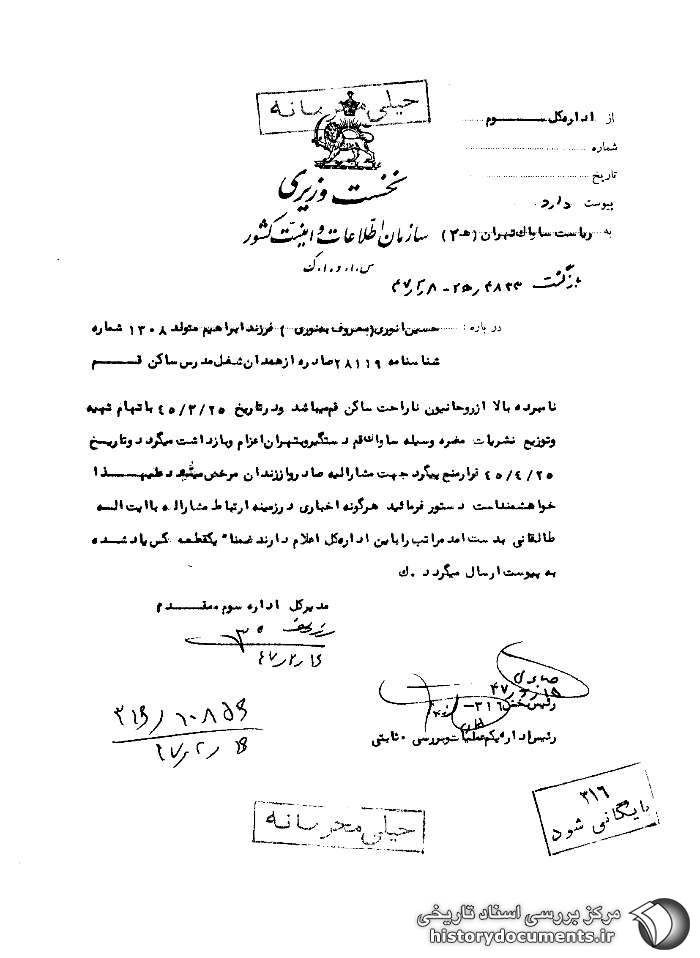 خیلی محرمانه
از اداره کل سوم
شماره
تاریخ
پیوست دارد
نخست وزیری
به ریاست ساواک تهران (ه ۳) سازمان اطلاعات و امنیت کشور
س.ا.و.ا.ک
بازگشت
درباره: حسین انوری (معروف به نوری) فرزند ابراهیم متولد ۱۳۰۸ شماره
شناسنامه ۲۸۱۱۹ صادره از همدان شغل مدرس ساکن قم
نامبرده بالا از روحانیون ناراحت ساکن قم میباشد و در تاریخ ۴۵/۳/۲۵ باتهام تهیه
و توزیع نشریات مضره وسیله ساواک قم دستگیر و بتهران اعزام و بازداشت میگردد و تاریخ
۴۵/۴/۲۵ قرار منع پیگرد جهت مشارالیه صادر و از زندان مرخص میشود علیهذا
خواهشمند است دستور فرمائید هرگونه اخباری در زمینه ارتباط مشارالیه با ایت اله
طالقانی بدست امد مراتب را باین اداره کل اعلام دارند ضمنا" یکقطعه عکس یاد شده
به پیوست ارسال میگردد . ک
مدیرکل اداره سوم مقدم
۴۷
رئیس بخش ۳۱۶ -
رئیس اداره یکم عملیات و بررسی . ثابتی
۳۱۶
بایگانی شود
خیلی محرمانه
مرکز بررسی اسناد تاریخی
historydocuments.ir